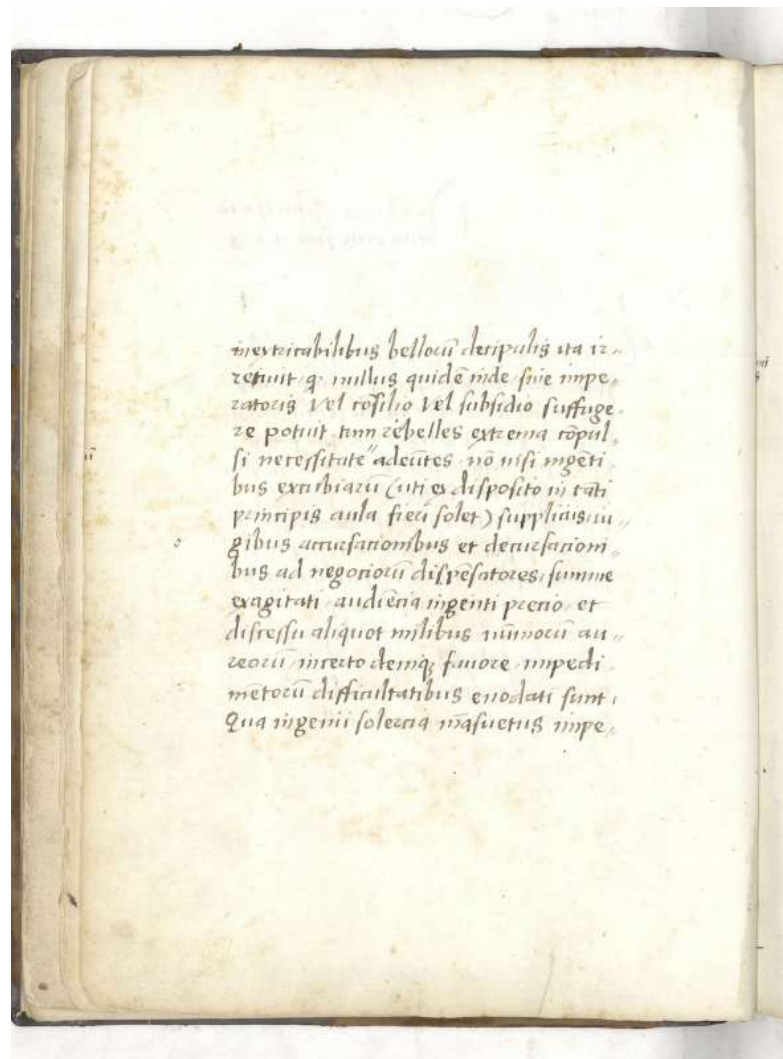 inextricabilibus bellorū decipulis ita ir„
retiuit q̨ nullus quidē inde sine impe„
ratoris vel cōsilio vel subsidio suffuge„
re potuit tum rebelles extrema cōpul„
si necessitate" adeūtes nō nisi ingēti
bus excubiarū (uti ex disposito in tāti
principis aula fieri solet) suppliciis iu„
gibus accursationibus et decursationi„
bus ad negociorū dispēsatores, summe
exagitati audiēcia ingenti precio et
discessu aliquot milibus nūmorū au„
reorū incerto demq̨ fauore impedi„
mētorū difficultatibus enodati sunt,
Qua ingenii solercia māsuetus impe„